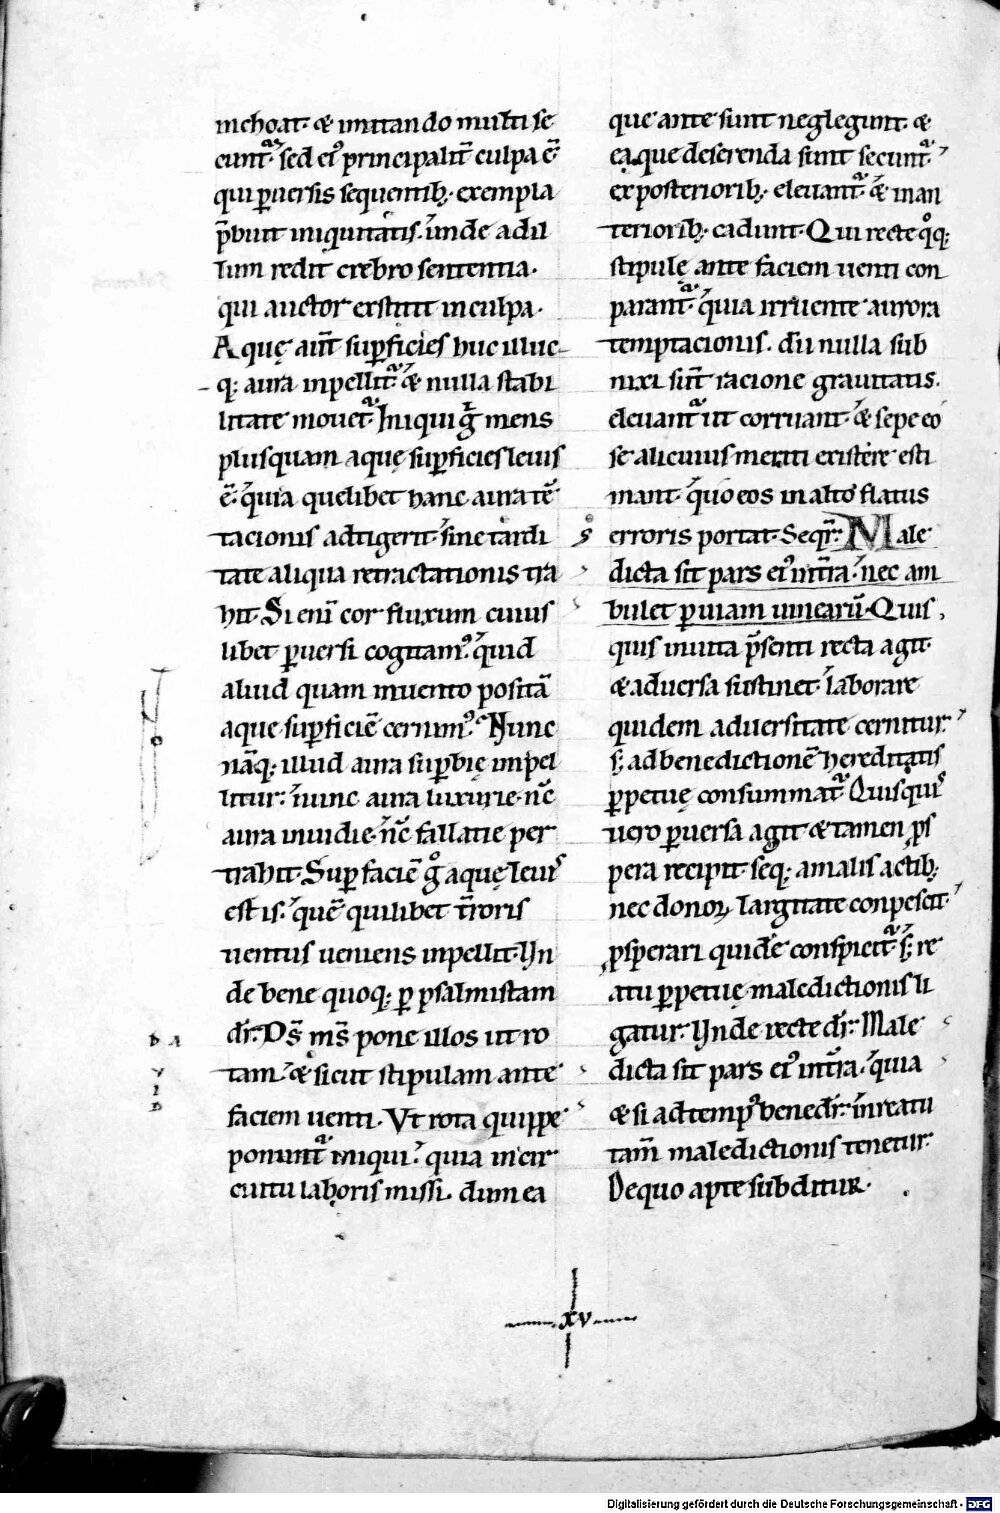 inchoat· & imitando multi se
cunt᷑· sed ei᷒ principalit̄ culpa ē·
qui ꝑuersis sequentib; exempla
p̄buit iniquitatis· Unde ad il
lum redit crebro sententia·
qui auctor extitit in culpa·
Aquę aut̄ suꝑficies huc illuc
q; aura inpellit᷑· & nulla stabi
litate mouet᷑· Iniqui g̊ mens
plusquam aquę suꝑficies leuis
ē· quia quelibet hanc aura tē
tacionis adtigerit· sine tardi
tate aliqua retractationis tra
hit· Si eni̅ cor fluxum cuius
libet ꝑuersi cogitam᷒· quid
aliud quam inuento positā
aque suꝑficiē cernim᷒· Nunc
nāq; illud aura suꝑbię inpel
litur· nunc aura luxurie· nc̄
aura inuidie· nc̄ fallatie per
trahit· Suꝑ faciē g̊ aquę leuis
est is· quē quilibet t̄roris
uentus ueniens inpellit· Un
de bene quoq; ꝑ psalmistam
dr̄· Ds̄ ms̄ pone illos ut ro
DA
tam· & sicut stipulam ante
V
I
D
faciem uenti· Ut rota quippe
ponunt᷑ iniqui· quia in cir
cuitu laboris missi· dum ea
que ante sunt neglegunt· &
ea que deserenda sunt secunt᷑·
ex posteriorib; eleuant᷑· & in an
teriorib; cadunt· Qui recte q̊q;
stipulę ante faciem uenti con
parant᷑· quia irruente aurora
temptacionis· du̅ nulla sub
nixi sunt̄ racione grauitatis·
eleuant᷑ ut corruant· & sepe eo
se alicuius meriti existere esti
mant· quo eos in alto flatus
erroris portat· Seqr̄· Male
dicta sit pars ei᷒ in tr̄a· nec am
bulet ꝑ uiam uinearu̅· Quis
quis in uita p̄senti recta agit·
& aduersa sustinet· laborare
quidem aduersitate cernitur·
s; ad benedictionē hereditatis
ꝑpetuę consummat᷑· Quisquis
uero ꝑuersa agit & tamen ꝓs
pera recipit seq; a malis actib;
nec donoꝝ largitate conpescit·
ꝓsperari quidē conspicit᷑· s; re
atu ꝑpetuę maledictionis li
gatur· Unde recte dr̄· Male
dicta sit pars ei᷒ in tr̄a· quia
& si ad temp᷒ benedr̄· in reatu
tam̄ maledictionis tenetur·
De quo apte subditur·
xv
Digitalisierung gefördert durch die Deutsche Forschungsgemeinschaft - DFG